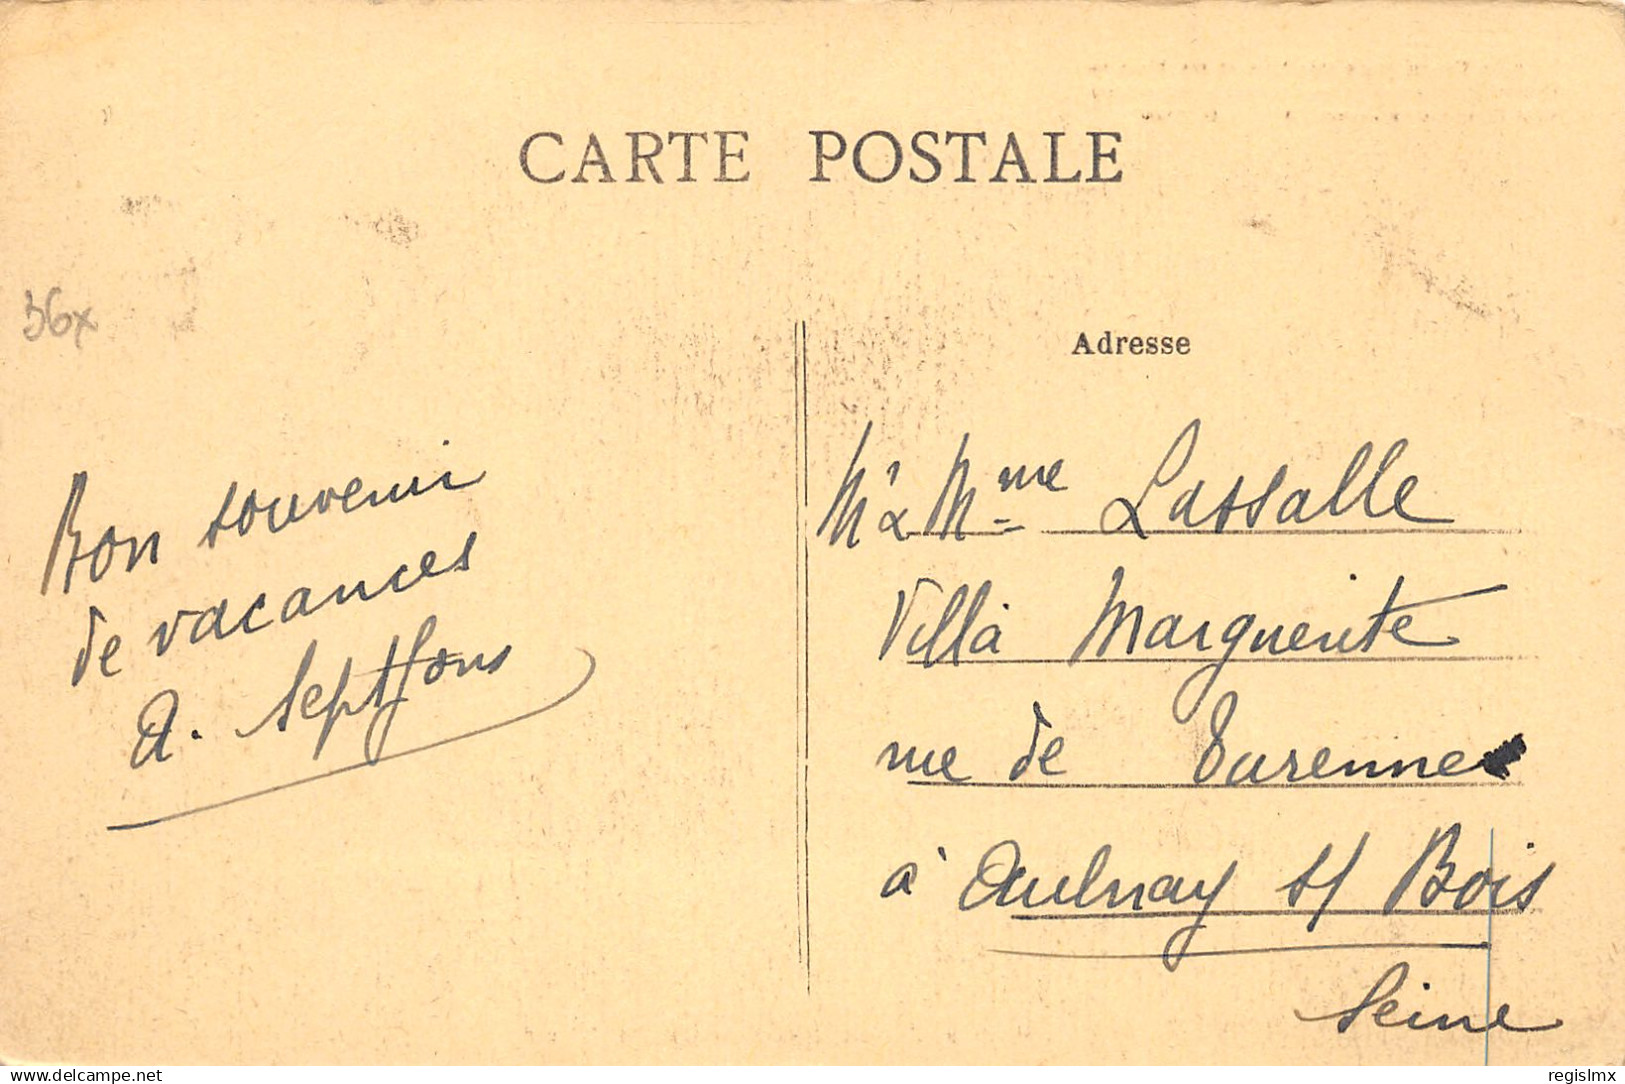 CARTE POSTALE
36x
Adresse
Bon souvenir
de vacances
A. Septfons
Mr & Mme Lassalle
Villa Marguerite
rue de Varenne
à Aulnay s/ Bois
Seine
delcampe.net
regislmx